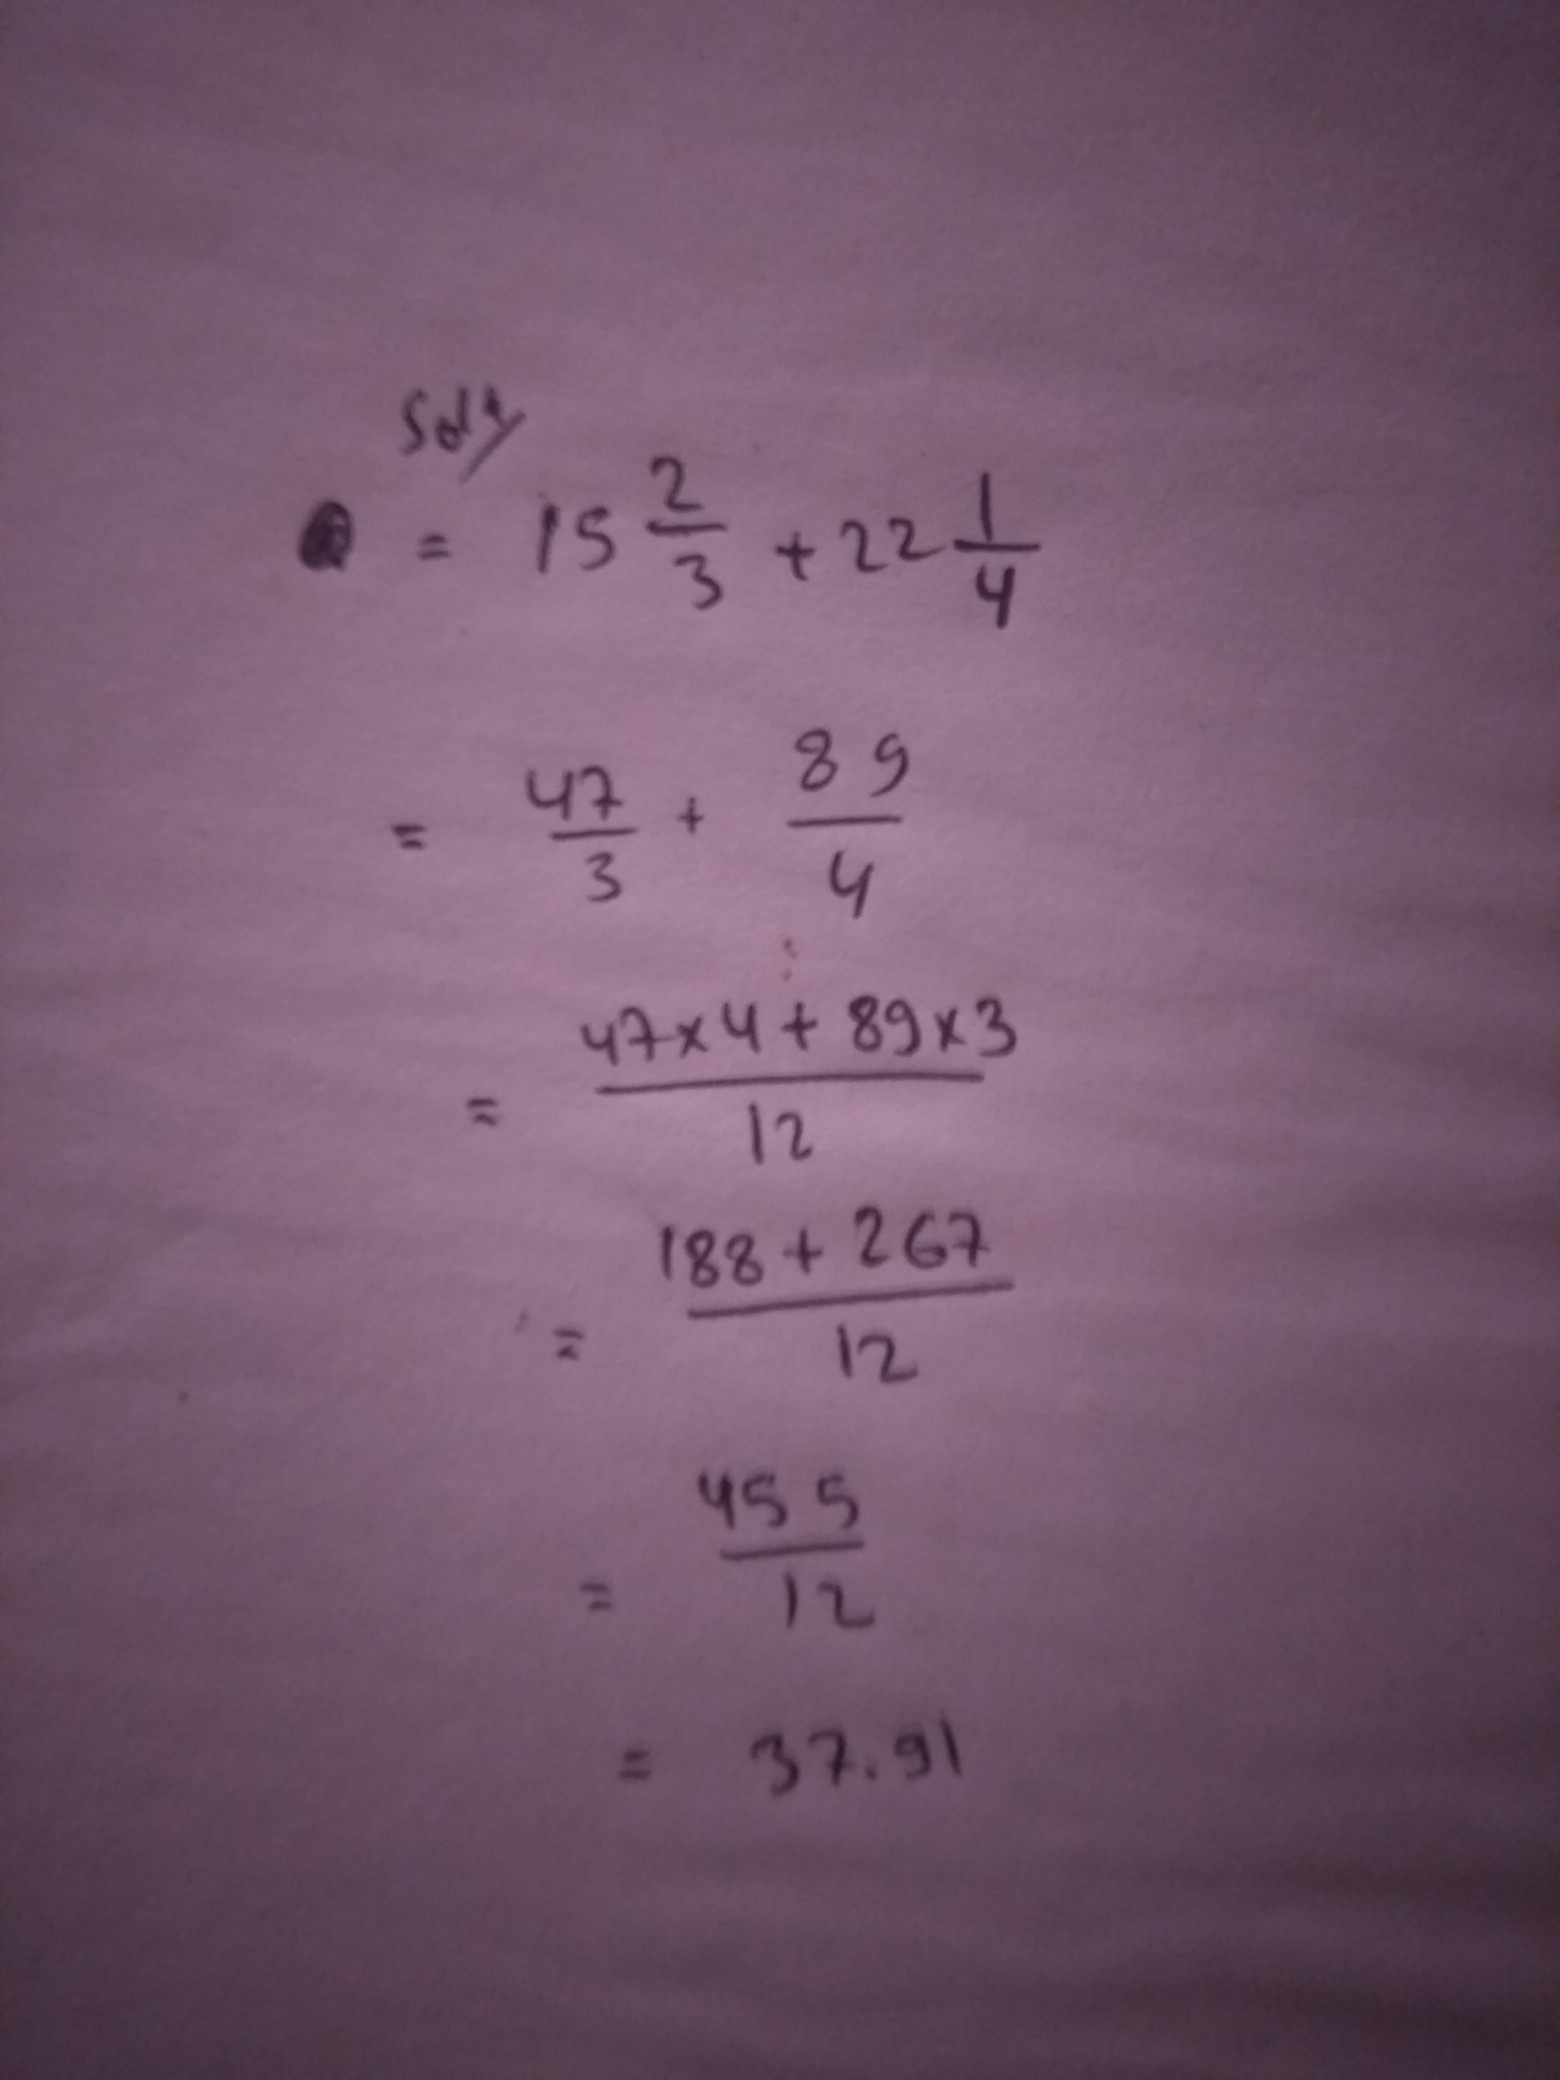 Soln
= 15 2/3 + 22 1/4
= 47/3 + 89/4
= 47x4 + 89x3 / 12
= 188 + 267 / 12
= 455 / 12
= 37.91